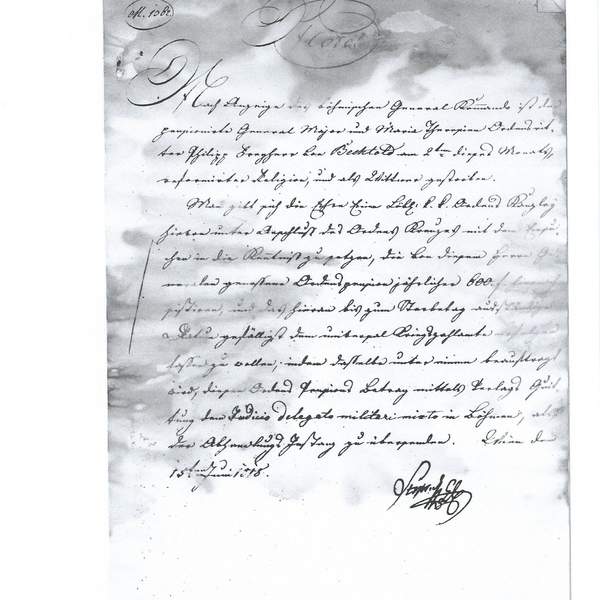 M. 1362.
Nota.
Nach Anzeige des böhmischen General Kommando ist der
pensionirte General Major und Maria Theresien Ordensrit-
ter Philipp Freyherr von Bechtold am 2ten dieses Monats,
reformirter Religion, und als Wittwer gestorben.
Man gibt sich die Ehre Eine Löbl. k. k. Ordens Kanzley
hievon unter Anschluß des Ordens Kreuzes mit dem Ersu-
chen in die Kenntniß zu setzen, die von diesem Herrn Ge-
neralen genossene Ordenspension jährlicher 600 f
und das hieran bis zum Sterbetag ausständige
gefälligst dem universal Kriegszahlamte
lassen zu wollen, indem dasselbe unter einem beauftragt
wird, diesen Ordens Pensions Betrag mittels Verlags Quit-
tung dem Judicio delegato militari mixto in Böhmen, als
der Abhandlungs Instanz zu übersenden. Wien den
15ten Juni 1818.